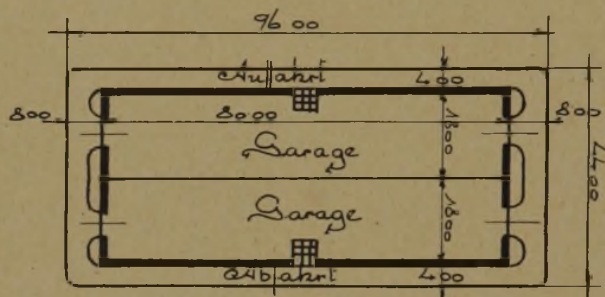 96 00
Auffahrt 400
800 80.00 800
1800
Garage
4400
Garage
1800
Abfahrt 400